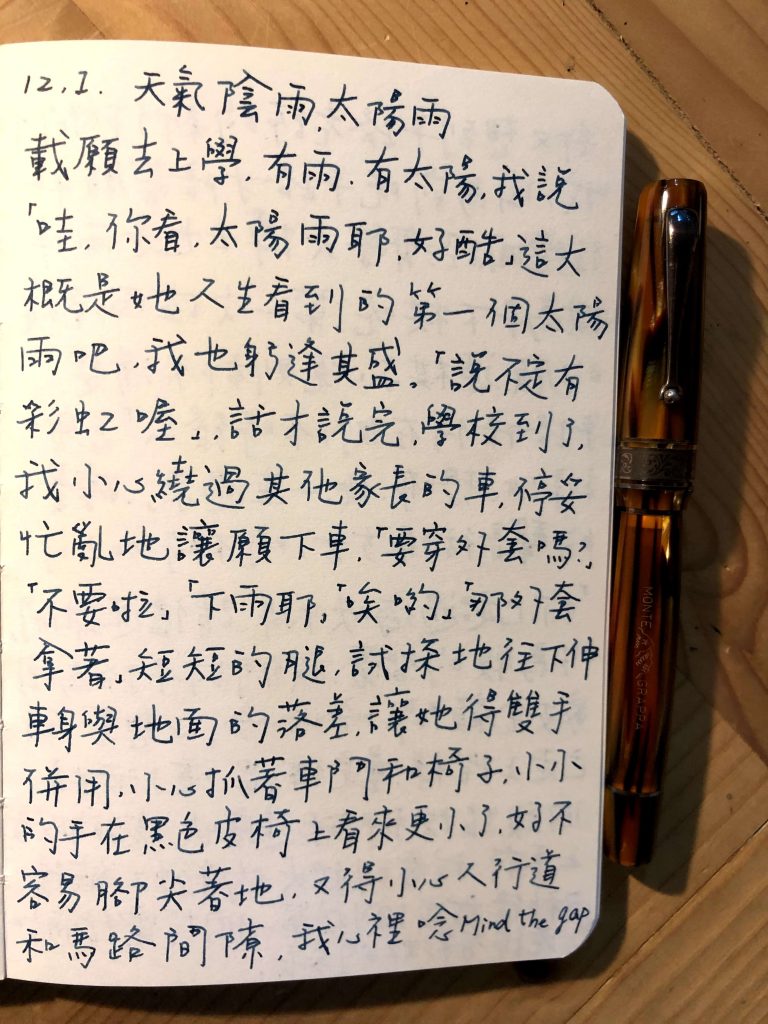 12.I. 天氣陰雨,太陽雨
載願去上學,有雨,有太陽,我說
「哇,你看,太陽雨耶,好酷」這大
概是她人生看到的第一個太陽
雨吧,我也躬逢其盛。「說不定有
彩虹喔」,話才說完,學校到了,
我小心繞過其他家長的車,停妥
忙亂地讓願下車,「要穿外套嗎?」
「不要啦」「下雨耶」「唉喲」「那外套
拿著」短短的腿,試探地往下伸
車身與地面的落差,讓她得雙手
併用,小心抓著車門和椅子,小小
的手在黑色皮椅上看來更小了,好不
容易腳尖著地,又得小心人行道
和馬路間隙,我心裡唸Mind the gap
MONTEGRAPPA